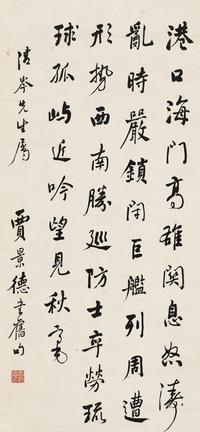 港口海門高雄關息怒濤
亂時嚴鎖閉巨艦列周遭
形勢西南勝巡防士卒勞琉
球孤嶼近吟望見秋高
清岑先生屬
賈景德書舊句